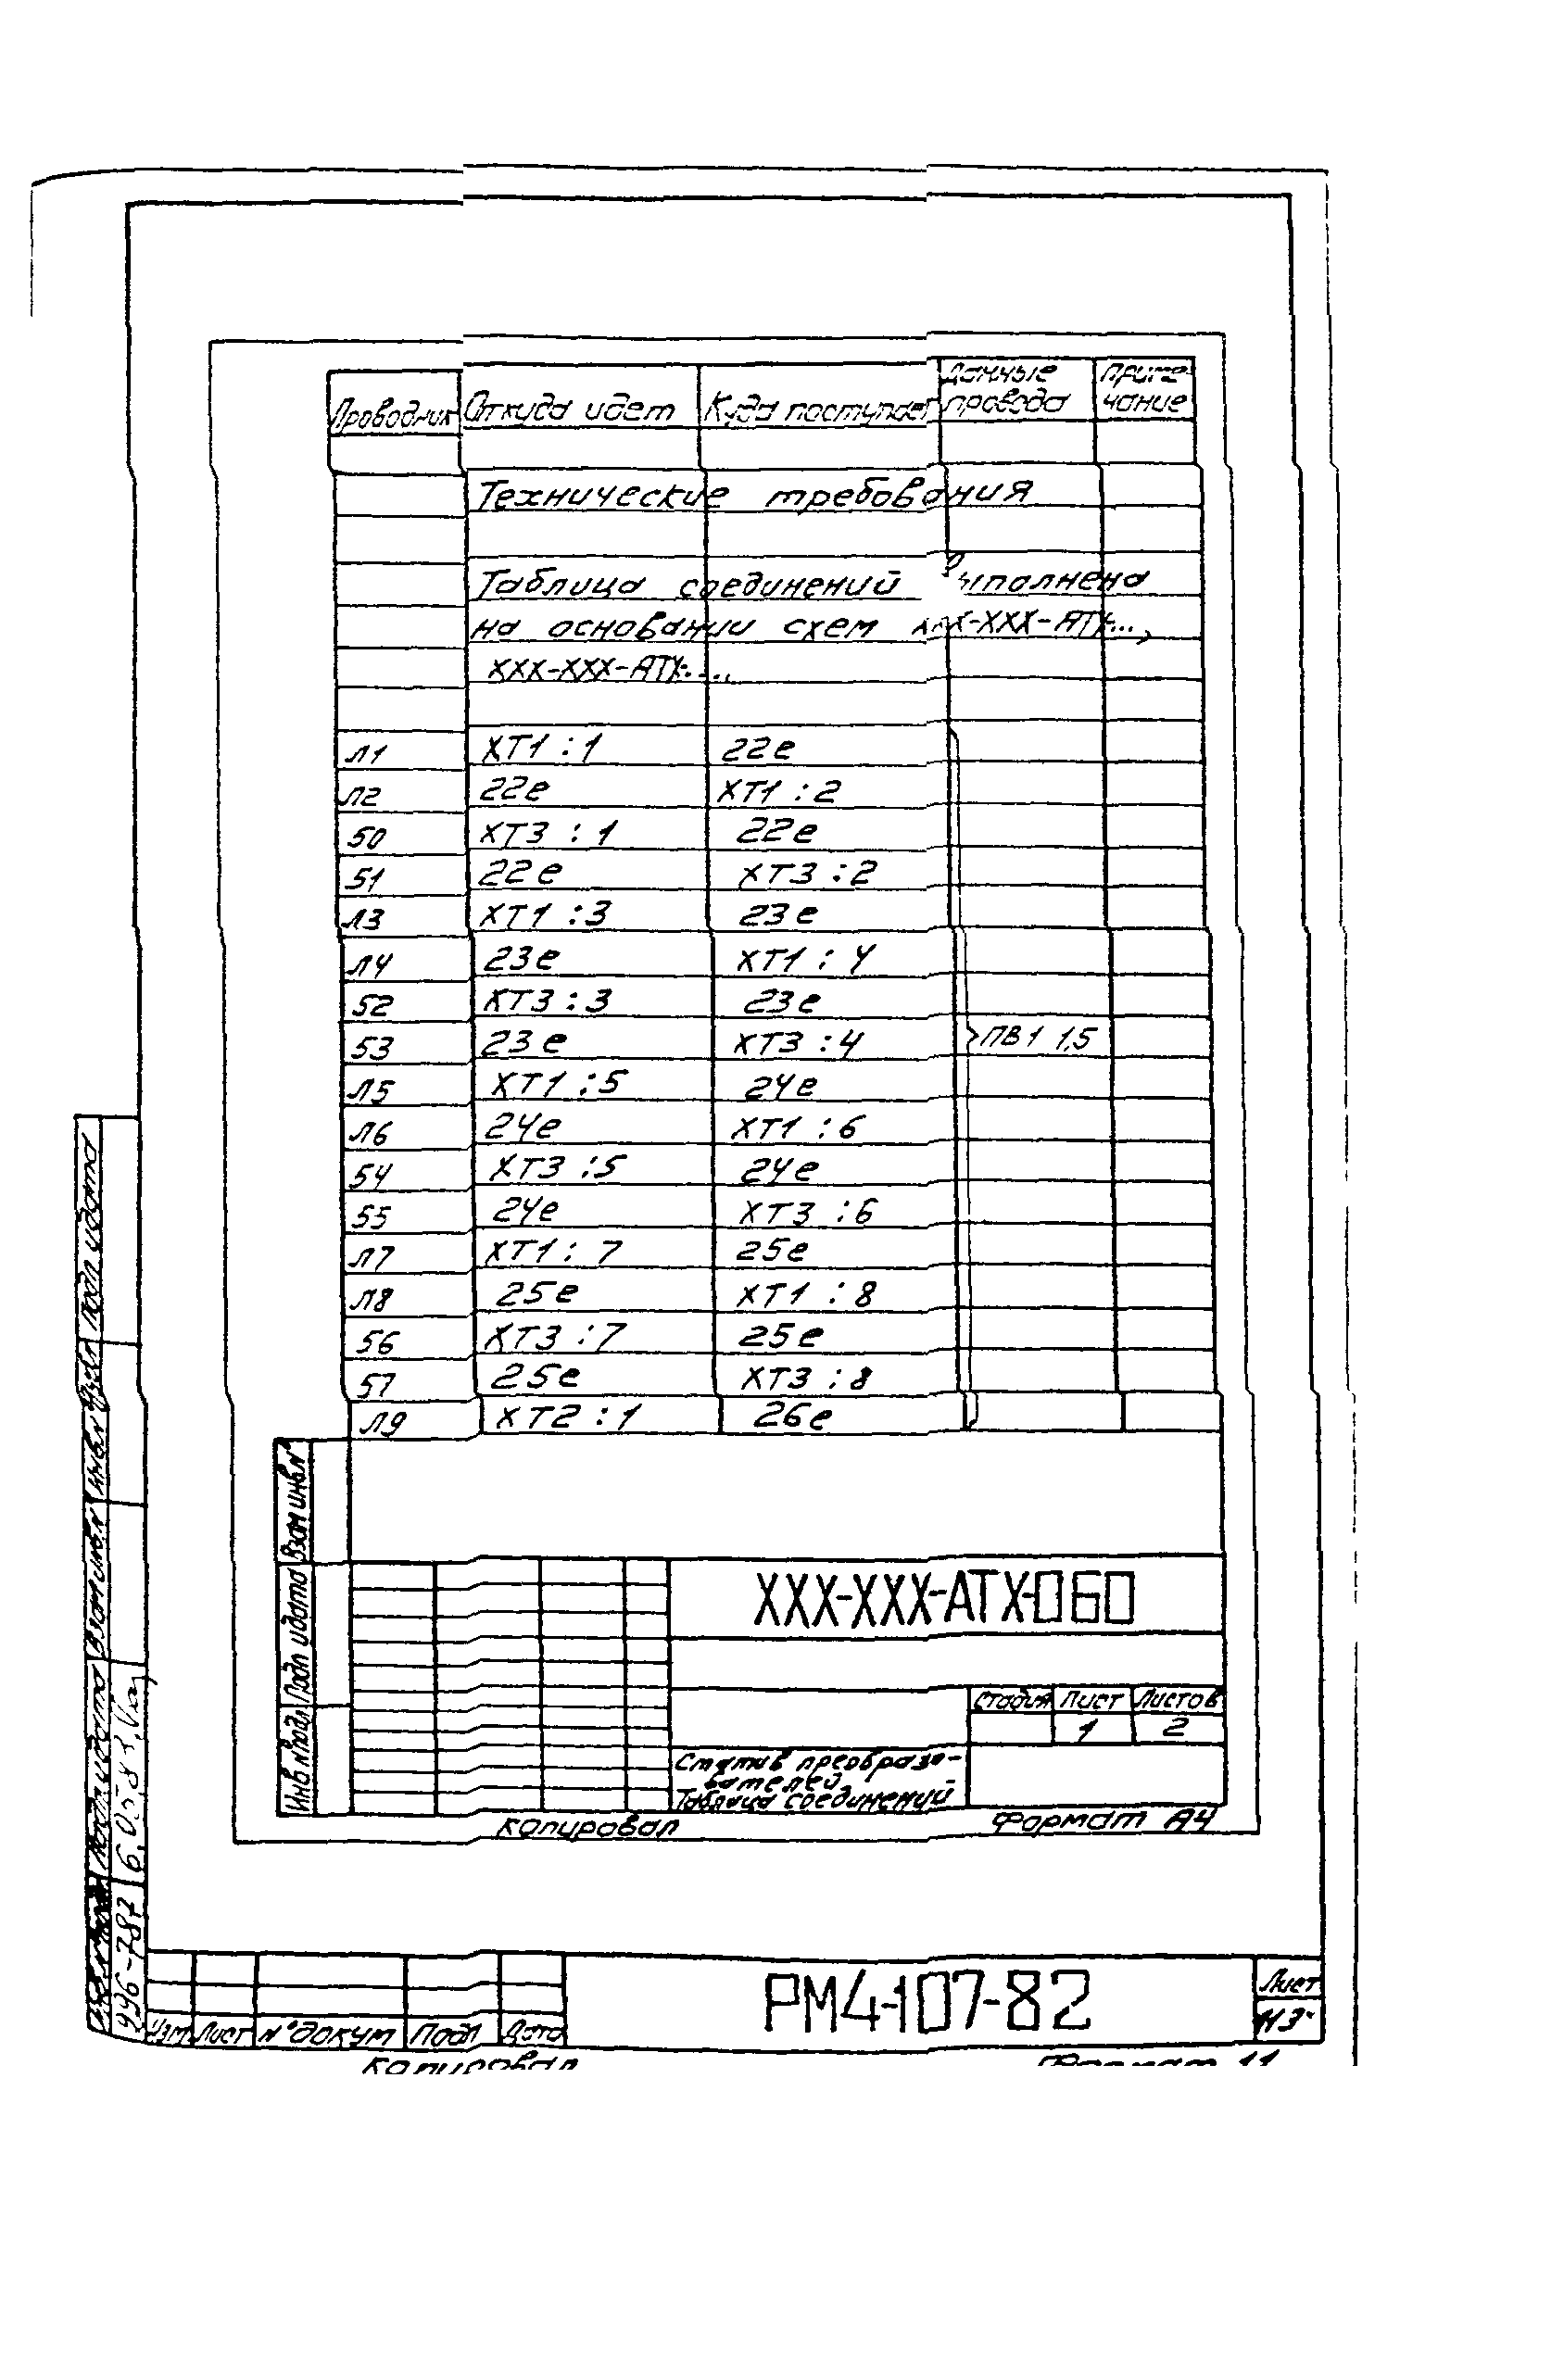 Проводник Откуда идет Куда поступает Данные провода Приме-чание
Технические требования
Таблица соединений выполнена
на основании схем ХХХ-ХХХ-АТХ...,
ХХХ-ХХХ-АТХ....
Л1 ХТ1 :1 22е
Л2 22е ХТ1 :2
50 ХТ3 :1 22е
51 22е ХТ3 :2
Л3 ХТ1 :3 23е
Л4 23е ХТ1 :4
52 ХТ3 :3 23е
53 23е ХТ3 :4 ПВ1 1,5
Л5 ХТ1 :5 24е
Л6 24е ХТ1 :6
54 ХТ3 :5 24е
55 24е ХТ3 :6
Л7 ХТ1 :7 25е
Л8 25е ХТ1 :8
56 ХТ3 :7 25е
57 25е ХТ3 :8
Л9 ХТ2 :1 26е
Взам инв.N
Подп и дата
Инв N подл
ХХХ-ХХХ-АТХ-060
Стадия Лист Листов
1 2
Статив преобразо-
вателей.
Таблица соединений
Копировал Формат А4
Подп и дата
Инв.N
Взам инв.N
Подп и дата
РМ4-107-82
Лист
Изм. Лист N° докум Подп Дата
Копировал Формат 11